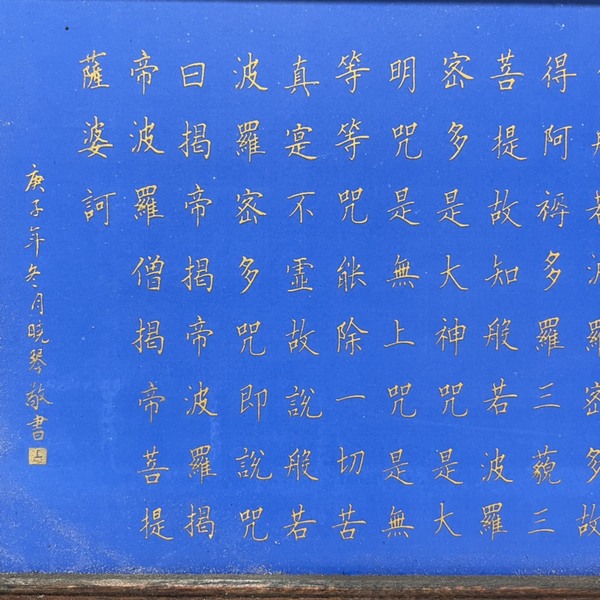 般若波羅密多故
得阿耨多羅三藐三
菩提故知般若波羅
密多是大神咒是大
明咒是無上咒是無
等等咒能除一切苦
真寔不虛故說般若
波羅密多咒即說咒
曰揭帝揭帝波羅揭
帝波羅僧揭帝菩提
薩婆訶
庚子年冬月曉琴敬書